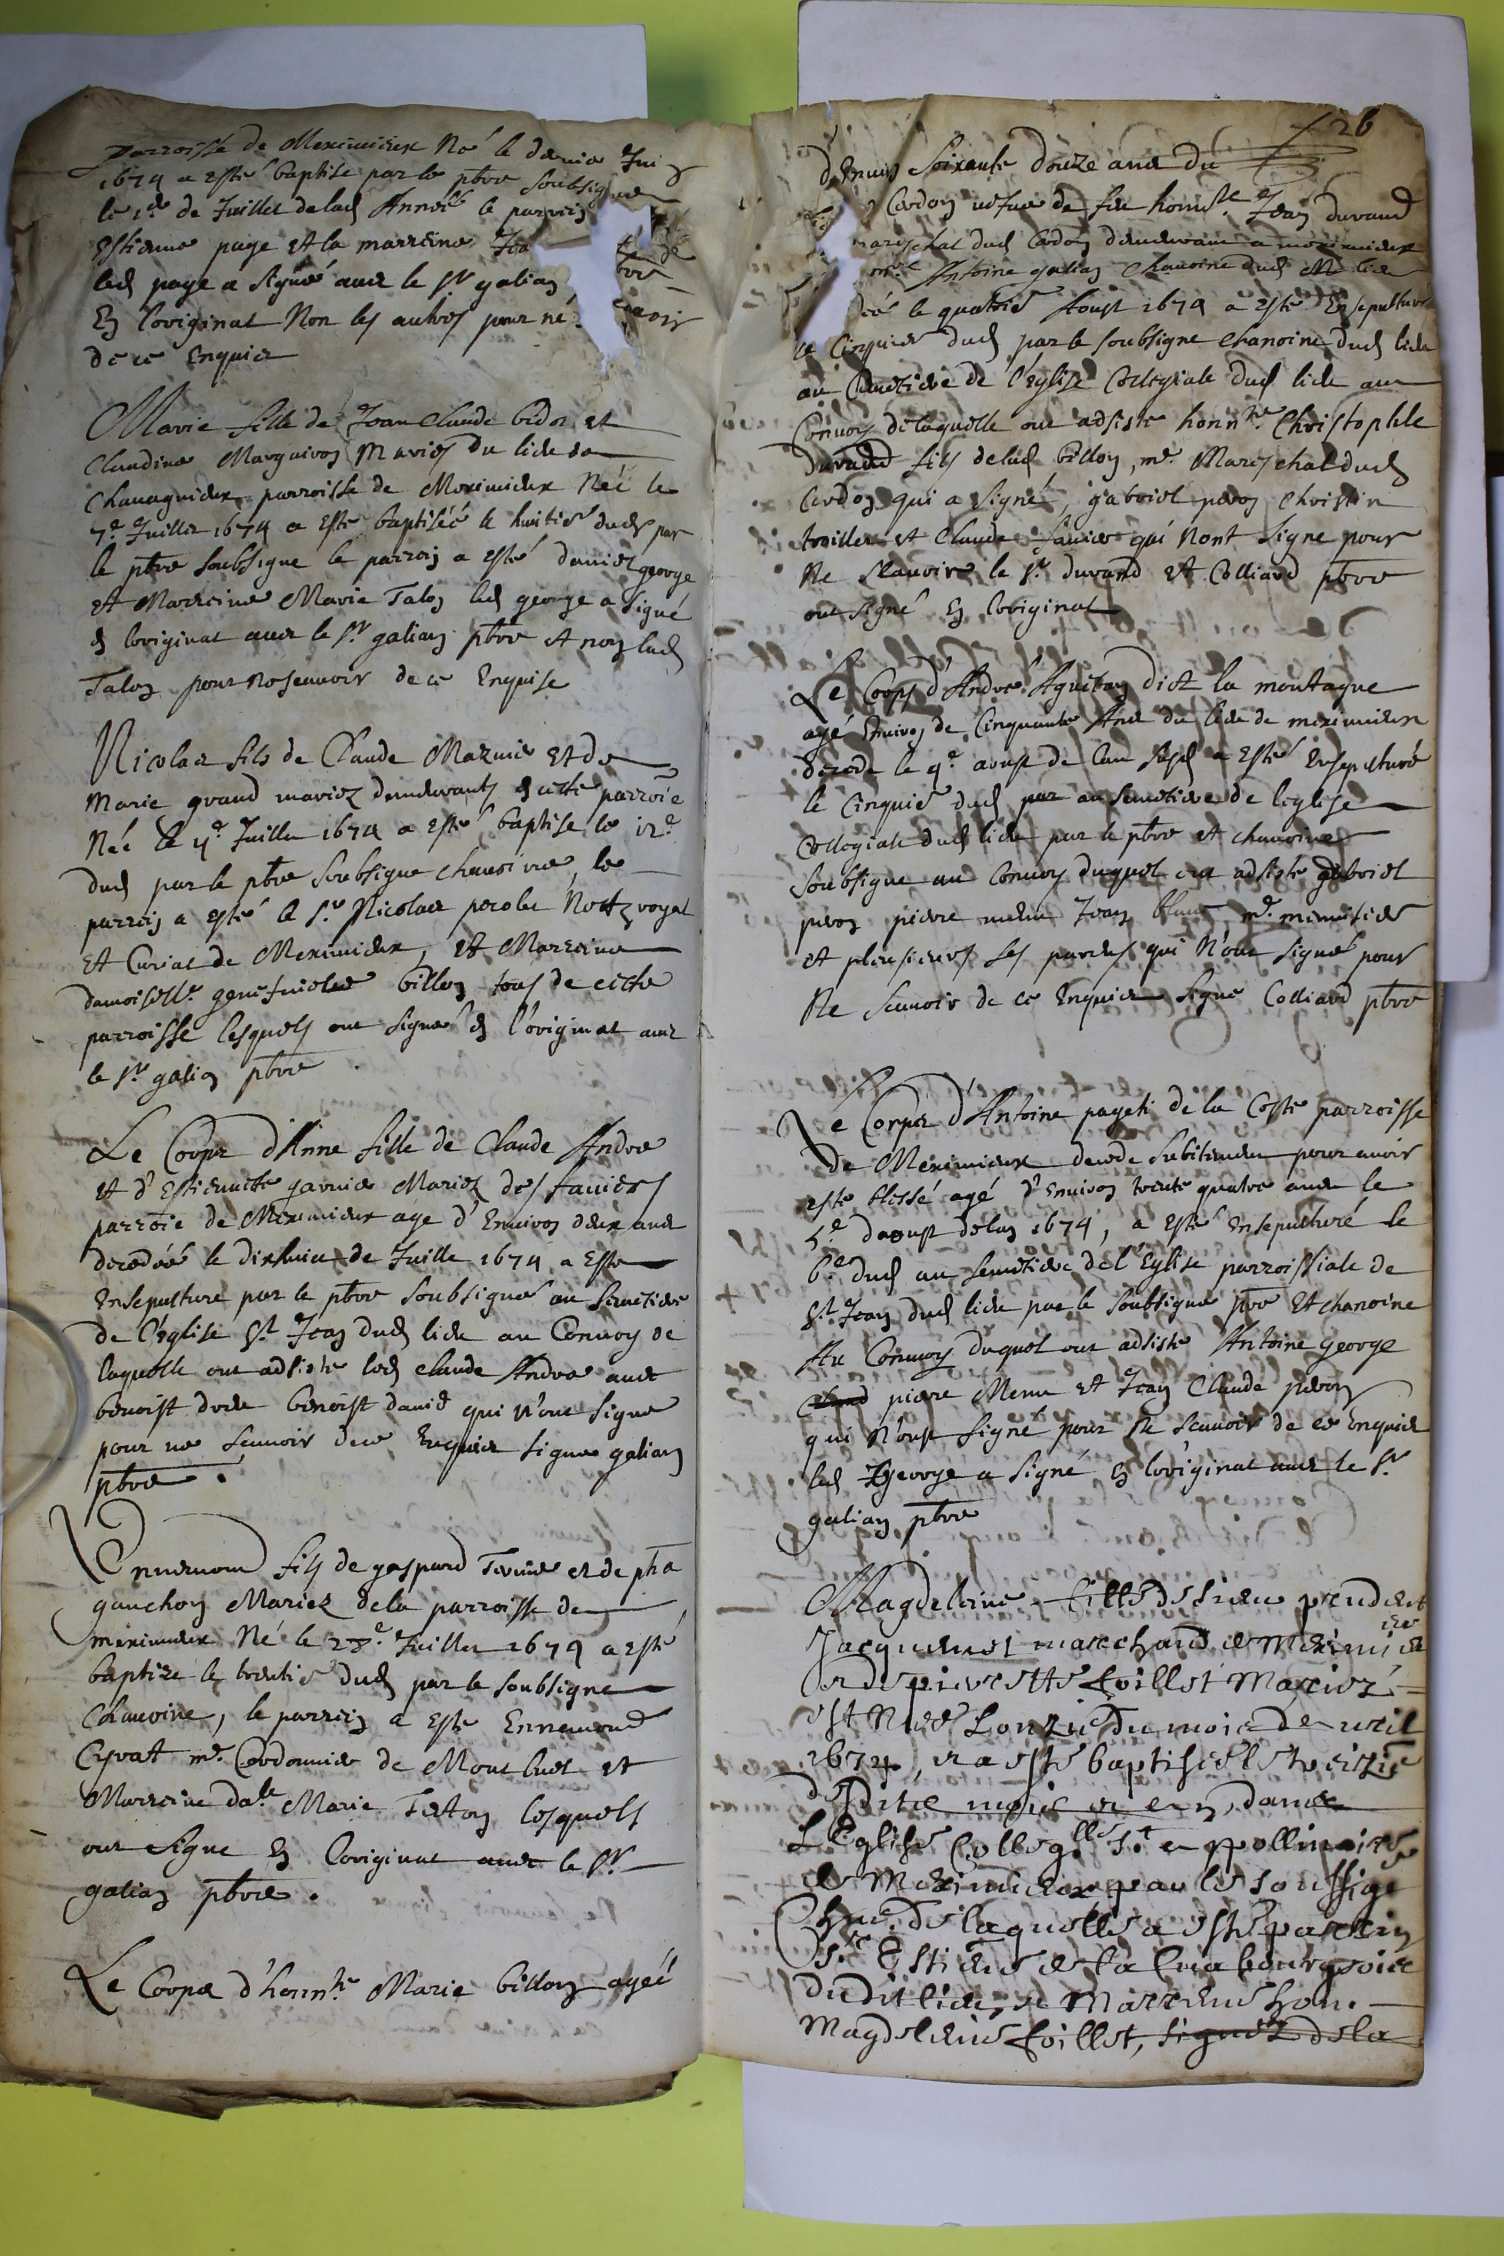 parroisse de Meximieux Né le dernier Juin
1674 a esté baptisé par le pbre soubsigné
le 1er de Juillet delad Année le parrein
Estienne page et la marreine Jea
led page a signé avec le sr galian pbre
En loriginat Non les autres pour ne scavoir
de ce Enquier
Marie fille de Jean Claude bidon et
Claudine Marguiron Mariés du lieu de
Chavagnieux parroisse de Meximieux Née le
7e Juillet 1674 a esté baptisée le huitie dud par
le pbre soubsigne le parrein a esté daniel george
et Marreine Marie Talon led george a signé
En loriginat avec le sr galian pbre et non lad
Talon pour ne scavoir de ce Enquise
Nicolas fils de Claude Maznie et de
Marie grand mariez demeurants En cette parroie
Né le 11e Juillet 1674 a esté baptisé le 12e
dud par le pbre soubsigne chanoine, le
parrein a esté le sr Nicolas Nottre royal
et Curial de Meximieux, et Marreine
damoiselle billon tous de cette
parroisse lesquels ont signé En l'originat avec
le sr galian pbre
Le Corps d'Anne fille de Claude André
et d'Estiennette garnier Mariez des faniers
parroie de Meximieux age d'Environ deux ans
decedée le dixhuict de Juillet 1674 a este
Ensepulturé par le pbre soubsigné au semetiere
de l'église St Jean dud lieu au Convoy de
laquelle ont adsisté led Claude André avec
benoist benoist david qui n'ont signé
pour ne scavoir de ce Enquier signé galian
pbre.
Ennemond fils de gaspard et de pha
gauchon Mariez dela parroisse de
meximieux Né le 28e Juillet 1674 a esté
baptize le trentie dud par le soubsigne
Chanoine, le parrein a esté Ennemond
Cyvat me Cordonnier de Montluel et
Marreine dalle Marie lesquels
ont signé En loriginat avec le sr
galian pbre.
Le Corps d'honnte Marie billon agée
26
d'Environ soixante douze ans du
Cardon vefve de feu honneste Jean durand
mareschal dud Cardon demeurant a meximieux
Antoine galian Chanoine dud lieu
decedé le quatrie Aoust 1674 a esté Ensepulturé
le Cinquie dud par le soubsigne chanoine dud lieu
au Cimetiere de l'église Collegiale dud lieu au
Convoy delaquelle ont adsisté honnte Christophle
durand fils delad billon, me Mareschal dud
Cardon qui a signé, gabriel peron Christin
trouiller et Claude qui Nont signé pour
Ne scavoir le sr durand et Colliard pbre
ont signé En loriginat
Le Corps d'André Aguitan dict la montagne
agé Environ de Cinquante Ans du lieu de meximieux
decede le 4e aoust de l'an a esté Ensepulturé
le Cinquie dud par au semetiere de leglise
Collegiale dud lieu par le pbre et chanoine
soubsigne au Convoy duquel ont adsisté gabriel
peron pierre menu Jean blanc me menuisier
et plusieurs ses parens qui N'ont signé pour
Ne scavoir de ce Enquier signé Colliard pbre
Le Corps d'Antoine pageti de la Coste parroisse
de Meximieux decede subitement pour avoir
este blessé agé d'Environ trente quatre ans le
5e daoust delan 1674, a esté Ensepulturé le
6e dud au semetiere de l'Eglise parroissiale de
St Jean dud lieu par le soubsigne pbre et chanoine
Au Convoy duquel ont adsisté Antoine george
pierre Menu et Jean Claude peron
qui N'ont signé pour Ne scavoir de ce Enquier
led george a signé En loriginat avec le sr
galian pbre
Magdeleine fille de sieur prudent
Jacquemet marchand de Meximieux
et de pierrette Coillet Mariez
est Née Lonzie du mois de
1674, et a esté baptisée le treizie
desdits mois et an, dans
L'Eglise Colleglle St appollinaire
de Meximieux par le soussigé
Chne de laquelle a esté parrein
Sr Estiene de la Cua bourgeois
dudit lieu, et Marreine hon.
Magdeleine Coillet, signez dela